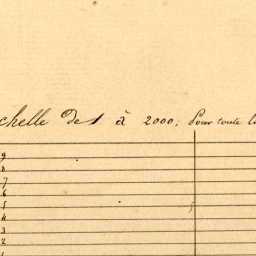 chelle de 1 à 2000. Pour toute l
9
8
7
6
5
4
3
2
1